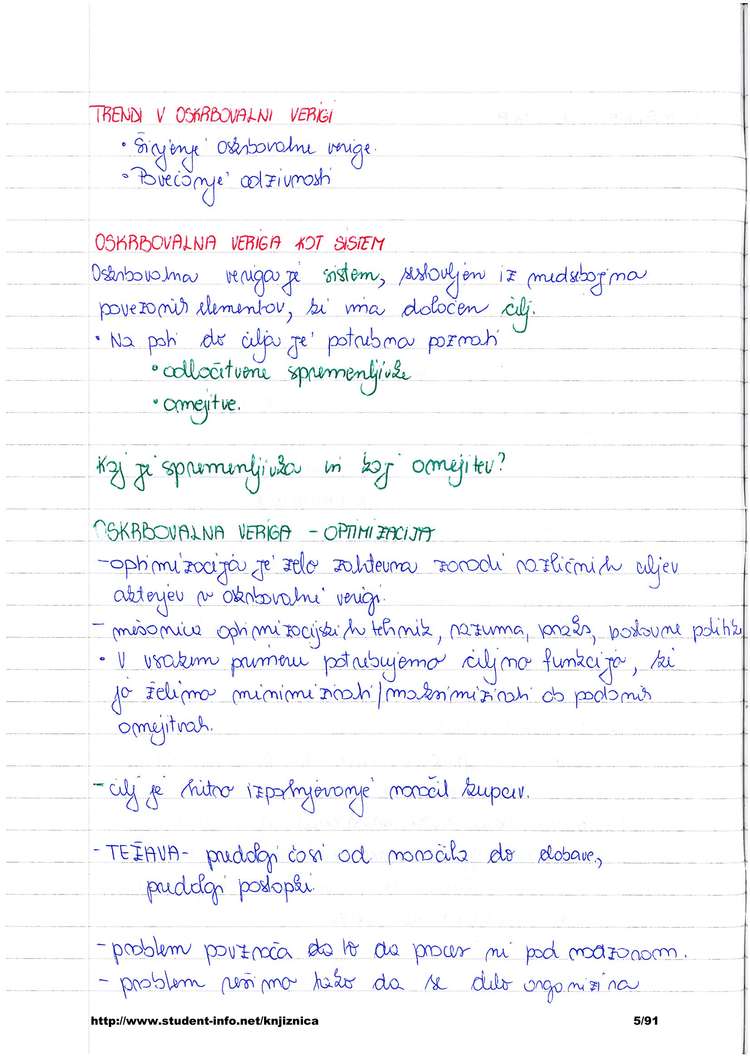 TRENDI V OSKRBOVALNI VERIGI
• Širjenje oskrbovalne verige.
• Povečanje odzivnosti
OSKRBOVALNA VERIGA KOT SISTEM
Oskrbovalna veriga je sistem, sestavljen iz medsebojno
povezanih elementov, ki ima določen cilj.
• Na poti do cilja je potrebno poznati
• odločitvene spremenljivke
• omejitve.
Kaj je spremenljivka in kaj omejitev?
OSKRBOVALNA VERIGA - OPTIMIZACIJA
- optimizacija je zelo zahtevna zaradi različnih ciljev
akterjev v oskrbovalni verigi.
- mešanica optimizacijskih tehnik, razuma, prakse, poslovne politike
• V vsakem primeru potrebujemo ciljno funkcijo, ki
jo želimo minimizirati/maksimizirati ob podanih
omejitvah.
- cilj je hitro izpolnjevanje naročil kupcev.
- TEŽAVA - predolgi časi od naročila do dobave,
predolgi postopki.
- problem povzroča da to da proces ni pod nadzorom.
- problem rešimo tako da se delo organizira
http://www.student-info.net/knjiznica
5/91